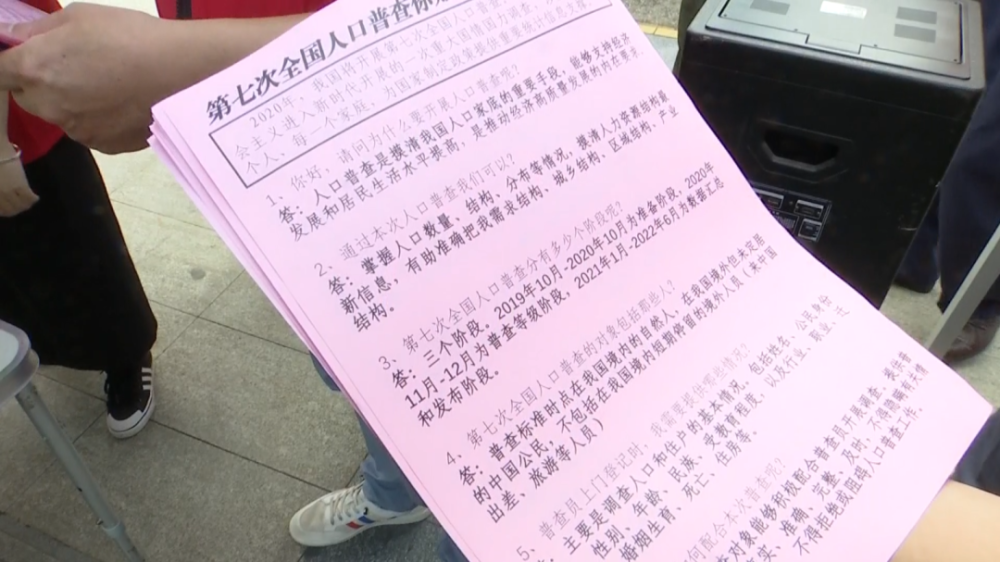 第七次全国人口普查你
2020年，我国将开展第七次全国人口普查，
会主义进入新时代开展的一次重大国情国力调查，
个人、每一个家庭，为国家制定政策提供重要统计信息支撑。
1、你好，请问为什么要开展人口普查呢？
答：人口普查是摸清我国人口家底的重要手段，能够支持经济
发展和居民生活水平提高，是推动经济高质量发展的内在要求
2、通过本次人口普查我们可以？
答：掌握人口数量、结构、分布等情况，摸清人力资源结构最
新信息，有助准确把我需求结构、城乡结构、区域结构、产业
结构。
3、第七次全国人口普查分有多少个阶段呢？
答：三个阶段。2019年10月-2020年10月为准备阶段，2020年
11月-12月为普查等级阶段，2021年1月-2022年6月为数据汇总
和发布阶段。
4、第七次全国人口普查的对象包括哪些人？
答：普查标准时点在我国境内的自然人，在我国境外但未定居
的中国公民，不包括在我国境内短期停留的境外人员（来中国
出差、旅游等人员）
5、普查员上门登记时，我需要提供哪些情况？
主要是调查人口和住户的基本情况，包括姓名、公民身份
性别、年龄、民族、受教育程度，以及行业、职业、迁
婚姻生育、死亡、住房等。
何配合本次普查呢？
查对象能够积极配合普查员开展调查，
实、准确、完整、及时，不得隐瞒有关情
不得拒绝或阻碍人口普查工作。